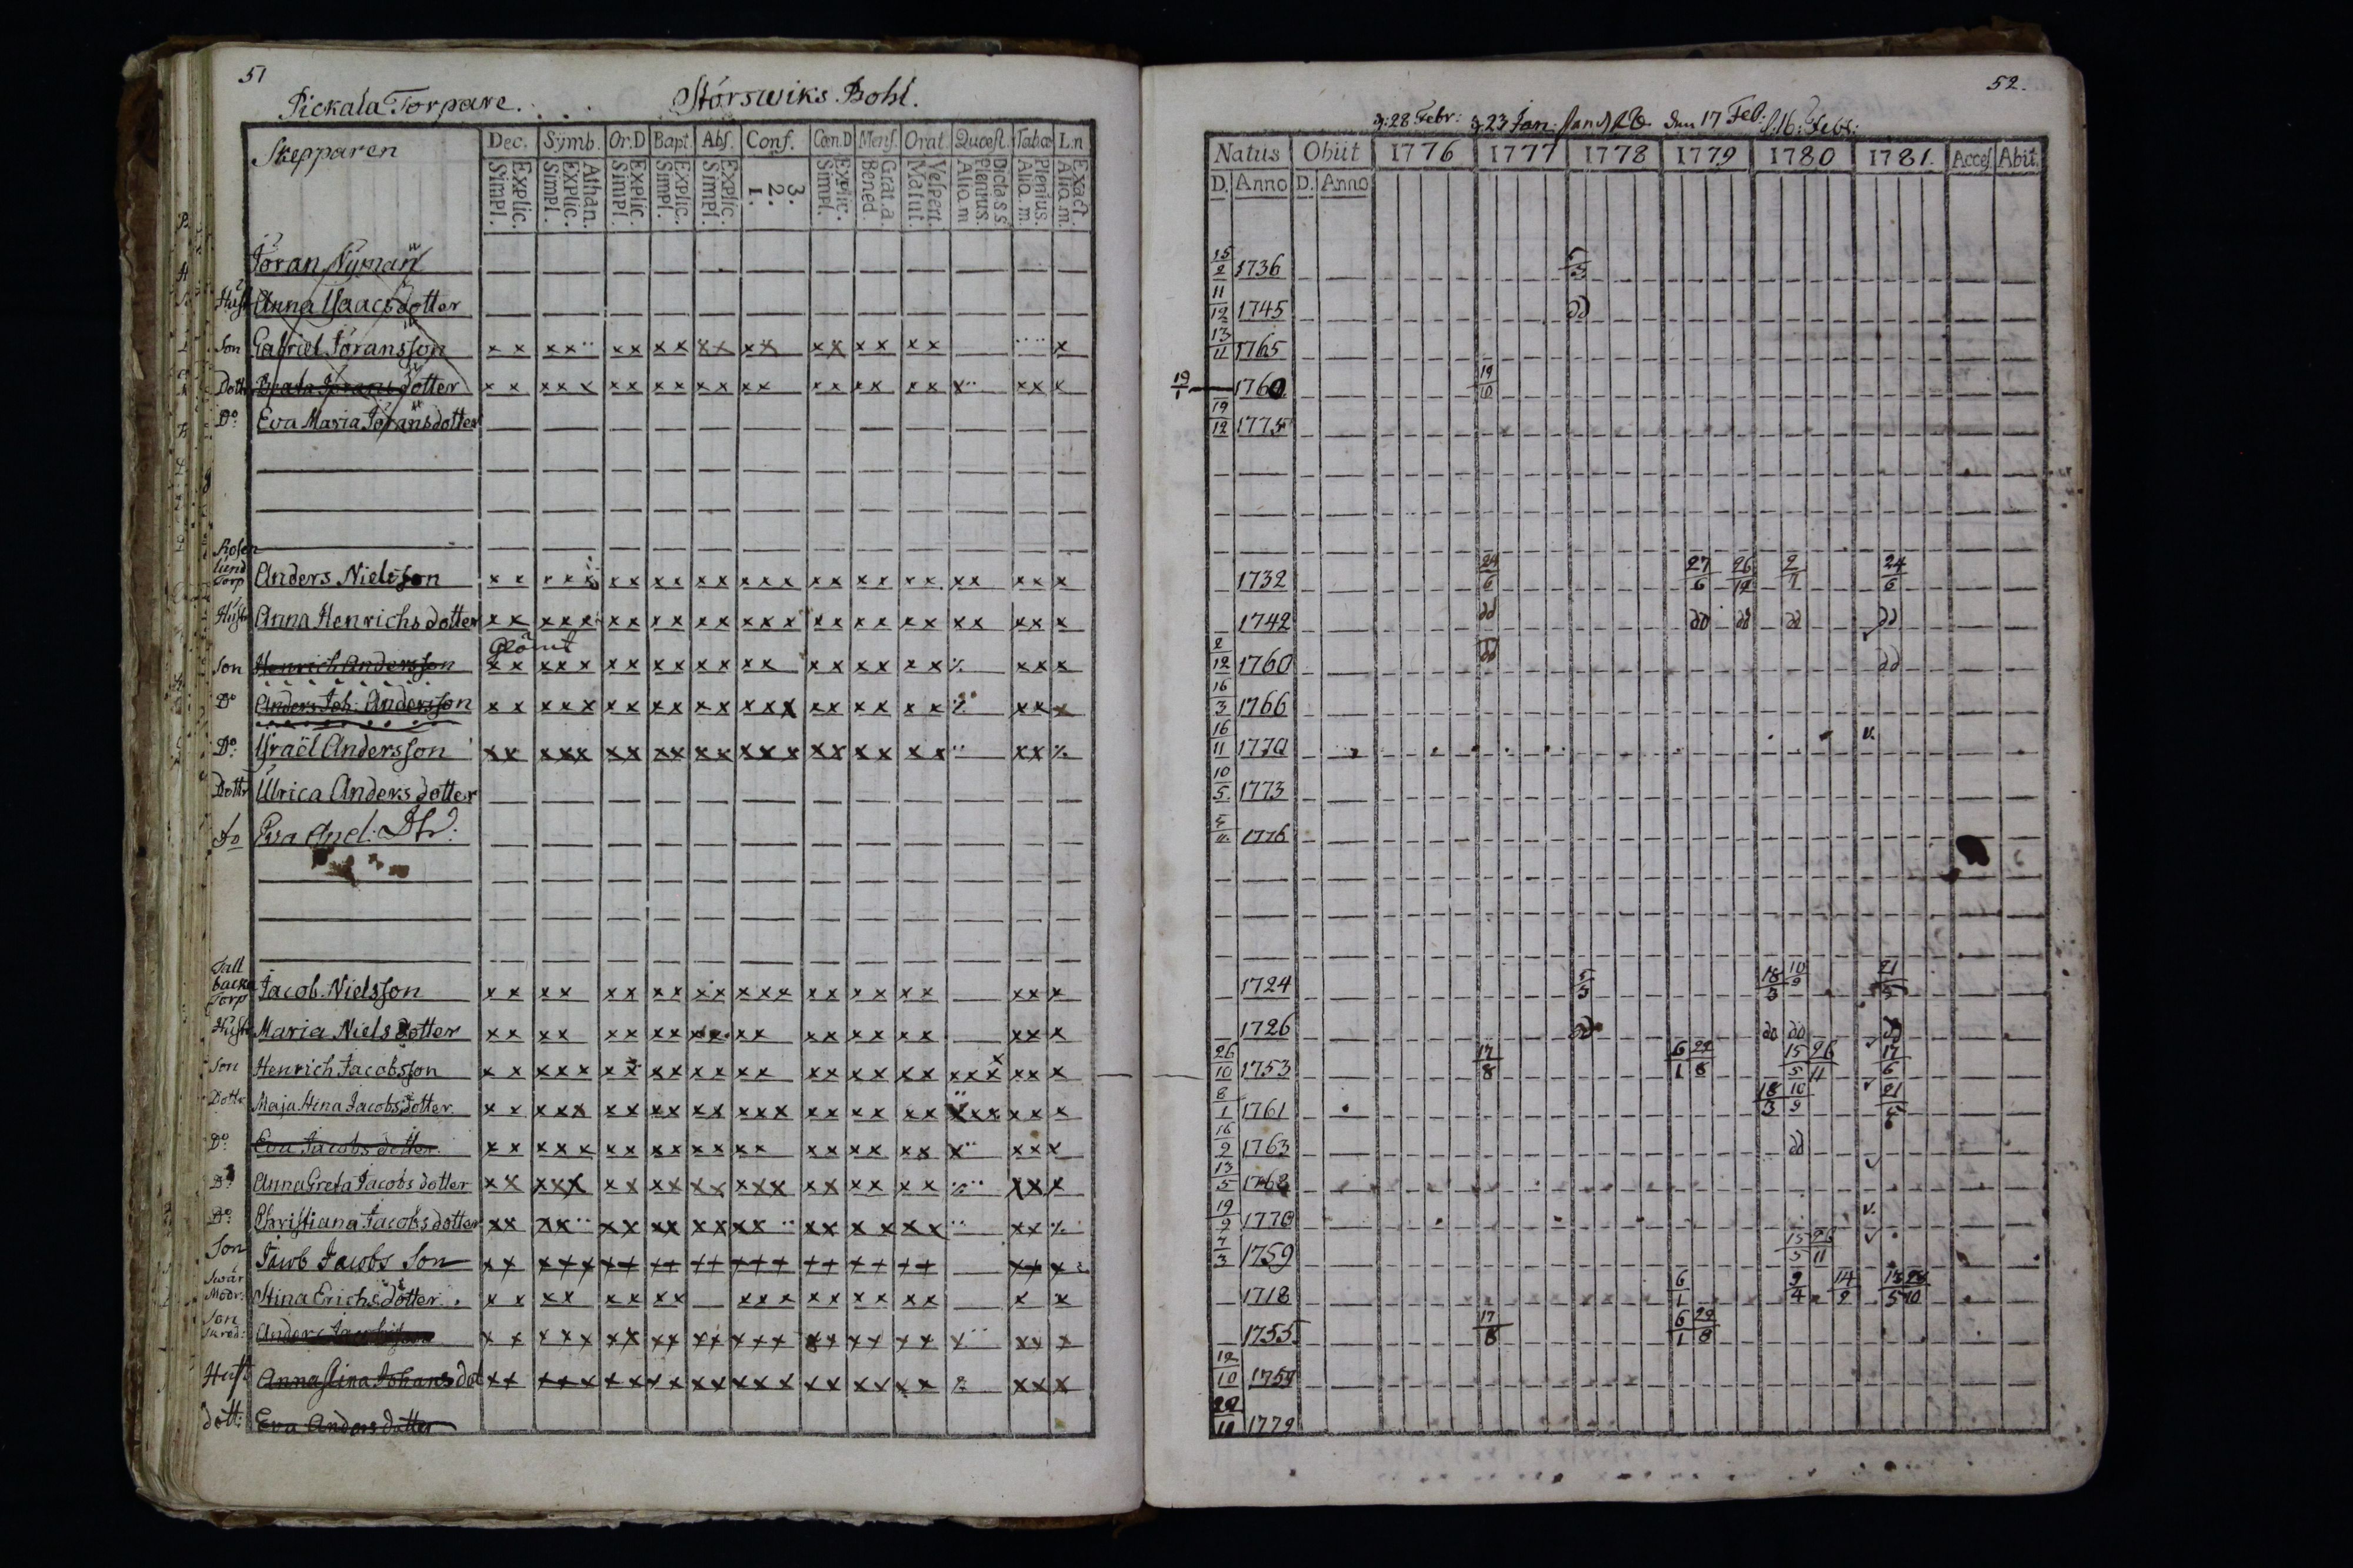 51
Pickala Torpare. Störswiks Bohl.
Skepparen Dec. Symb. Or.D Bapt. Abs. Conf. Cœn.D Mens. Orat. Quœst. Tabœ L.n
Simpl. Explic. Simpl. Explic. Athan. Simpl. Explic. Simpl. Explic. Simpl. Explic. 1. 2. 3. Simpl. Explic. Bened. Grat.a. Matut. Vespert. Aliq.m Plenius. Dicta s s Aliq.m. Plenius. Aliq.m. Exact.
Jöran Nyman
Hust Anna Isaacsdotter
Son Gabriel Jöransson
Dott Beata Jöransdotter
Do: Eva Maria Jöransdotter
Rosen
lund
Torp Anders Nielsson
Hust Anna Henrichsdotter
Glömt
Son Henrich Andersson
Do Anders Joh: Andersson
Do: Israël Andersson
Dottr Ulrica Andersdotter
do Eva And: Dtr.
Tall
backa
Torp Jacob Nielsson
Hust Maria Nielsdotter
Son Henrich Jacobsson
Dottr Maja Stina Jacobsdotter
Do: Eva Jacobsdotter
Do: Anna Greta Jacobsdotter
Do: Christiana Jacobsdotter
Son Jacob Jacobs Son
Swär
Modr: Stina Erichsdotter
Son
Anders Jacobsson
Hust Anna Stina Johansdot
dott: Eva Andersdotter
52.
28 Febr: 23 Jan: den 17 Feb: 16: Febr:
Natus Obiit 1776 1777 1778 1779 1780 1781. Acces. Abit.
D. Anno D. Anno
15/2 1736
11/12 1745 dd
13/11 1765
19/1 1760 19/10
19/12 1775
1732 24/6 27/6 26/12 2/7 24/6
1742 dd dd dd dd dd
2/12 1760 dd dd
16/3 1766
16/11 1770 v.
10/5 1773
1776
1724 5/3 18/3 10/9 21/5
1726 dd dd dd dd
26/10 1753 17/8 6/1 29/8 15/5 26/11 17/6
8/1 1761 18/3 10/9 21/5
16/9 1763 dd
13/5 1768
19/9 1770 v.
7/3 1759 15/5 26/11
1718 6/1 9/4 14/9
1755 17/8 6/1 29/8
12/10 1759
1779